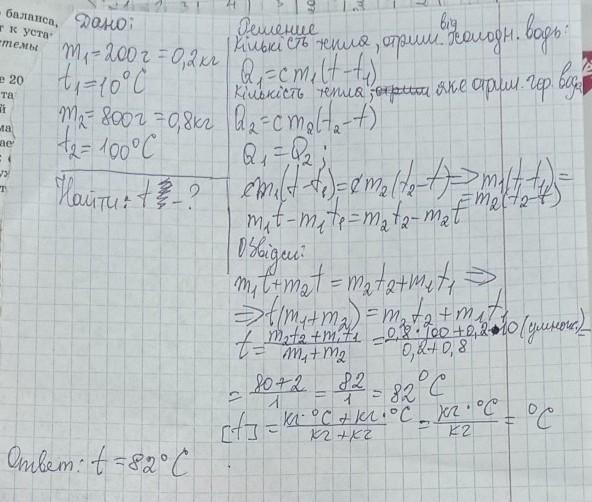 баланса,
т к уста
стемы
е 20
та
Дано:
m₁=200г=0,2кг
t₁=10°C
m₂=800г=0,8кг
t₂=100°C
Найти: t -?
Решение
від
Кількість тепла, отрим. холодн. водь:
Q₁=cm₁(t-t₁)
Кількість тепла, яке отрим. гор. вода
Q₂=cm₂(t₂-t)
Q₁=Q₂;
cm₁(t-t₁)=cm₂(t₂-t)⇒m₁(t-t₁)=
=m₂(t₂-t)
m₁t-m₁t₁=m₂t₂-m₂t
Звідси:
m₁t+m₂t=m₂t₂+m₁t₁ ⇒
⇒t(m₁+m₂)=m₂t₂+m₁t₁
t=(m₂t₂+m₁t₁)/(m₁+m₂)=(0,8·100+0,2·10 (умнож.))/(0,2+0,8)=
=(80+2)/1=82/1=82°C
[t]=(кг·°C+кг·°C)/(кг+кг)=(кг·°C)/кг=°C
Ответ: t=82°C.